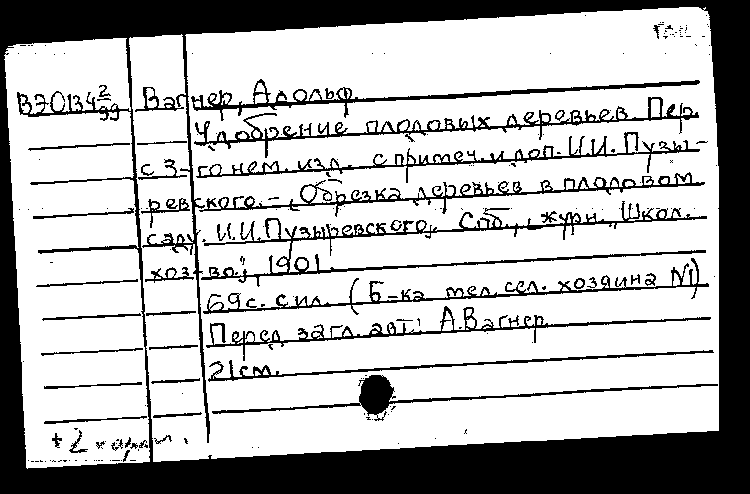 ГПИ
В 70134 2/99 Вагнер, Адольф.
Удобрение плодовых деревьев. Пер.
с 3-го нем. изд. с примеч. и доп. И.И. Пузы-
ревского. – „Обрезка деревьев в плодовом
саду. И.И. Пузыревского„ Спб., „журн. „Школ.
хоз-во”, 1901.
69 с. с ил. (Б-ка мел. сел. хозяина №1)
Перед загл. авт.: А. Вагнер
21 см.
+ 2